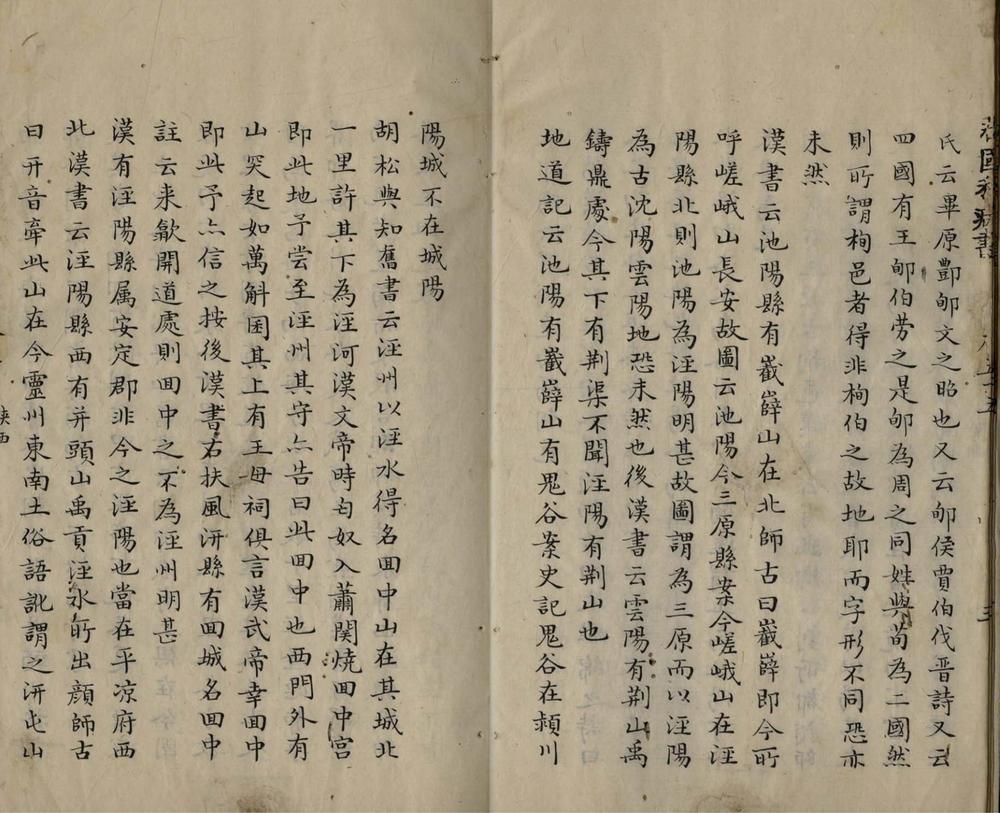 氏云畢原酆郇文之昭也又云郇侯賈伯伐晋詩又云
四國有王郇伯劳之是郇為周之同姓與荀為二國然
則所謂栒邑者得非栒伯之故地耶而字形不同恐亦
未然
漢書云池陽縣有嶻嶭山在北師古曰嶻嶭即今所
呼嵯峨山長安故圖云池陽今三原縣案今嵯峨山在涇
陽縣北則池陽為涇陽明甚故圖謂為三原而以涇陽
為古沈陽雲陽地恐未然也後漢書云雲陽有荆山禹
鑄鼎處今其下有荆渠不聞涇陽有荆山也
地道記云池陽有嶻嶭山有鬼谷案史記鬼谷在頴川
陽城不在城陽
胡松與知舊書云涇州以涇水得名囬中山在其城北
一里許其下為涇河漢文帝時匈奴入蕭関焼囬中宫
即此地予尝至涇州其守亦告曰此囬中也西門外有
山突起如萬斛囷其上有王母祠俱言漢武帝幸囬中
即此予亦信之按後漢書右扶風汧縣有囬城名囬中
註云来歙開道處則囬中之不為涇州明甚
漢有涇陽縣属安定郡非今之涇陽也當在平凉府西
北漢書云涇陽縣西有并頭山禹貢涇水所出顔師古
曰开音牵此山在今靈州東南土俗語訛謂之汧屯山
陕西